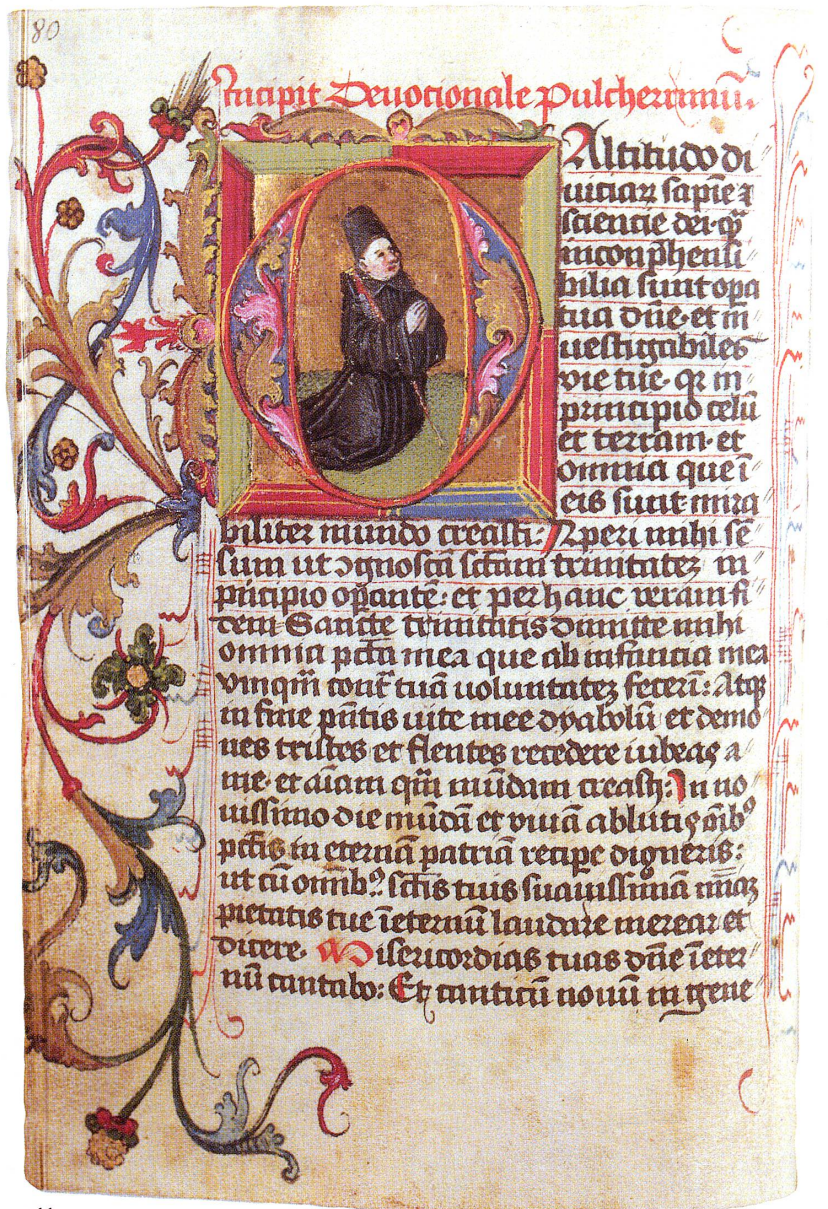 80
Incipit Deuotionale Pulcherrimū.
O Altitudo di
uiciaꝝ sapie ⁊
sciencie dei· qm̄
incōp̃hensi
bilia sunt opa
tua dn̄e· et in
uestigabiles
vie tue· qꝛ in
principio celū
et terram· et
omnia que ī
eis sunt mira
biliter mundo creasti: Aperi mihi sē
sum ut ꝯgnoscā sctam trinitateꝫ in
principio opantē: et per hanc veram fi
dem Sancte trinitatis dimitte mihi
omnia pctā mea que ab infancia mea
vnqm̄ cont̃ tuā uoluntateꝫ feceri: Atqꝫ
in fine pn̄tis uite mee dyabolū et demo
nes tristes et flentes recedere iubeas a
me· et aīam qm̄ mūdam creasti: In no
uissimo die mūdā et viuā ablutis om̄ibꝰ
pctīs in eternā patriā recipe digneris:
ut cū omnibꝰ sctīs tuis suauissimā
pietatis tue īeternū laudare merear et
dicere· Misericordias tuas dn̄e īeter
nū cantabo: Et canticū nouū in gene